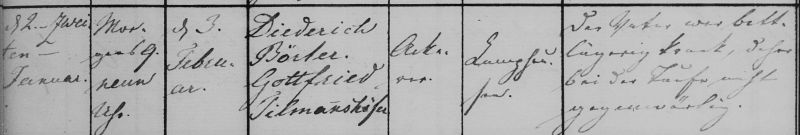 d 2. Zwei-
ten
Januar.
Mor-
gens 9.
neun
Uhr.
d 3.
Februar
ar.
Diederich
Börter.
Gottfried
Tilmannshöfer
Acke-
rer.
Lamps-
hsn.
Der Vater war bett-
lägerig krank, daher
bei der Taufe nicht
gegenwärtig.